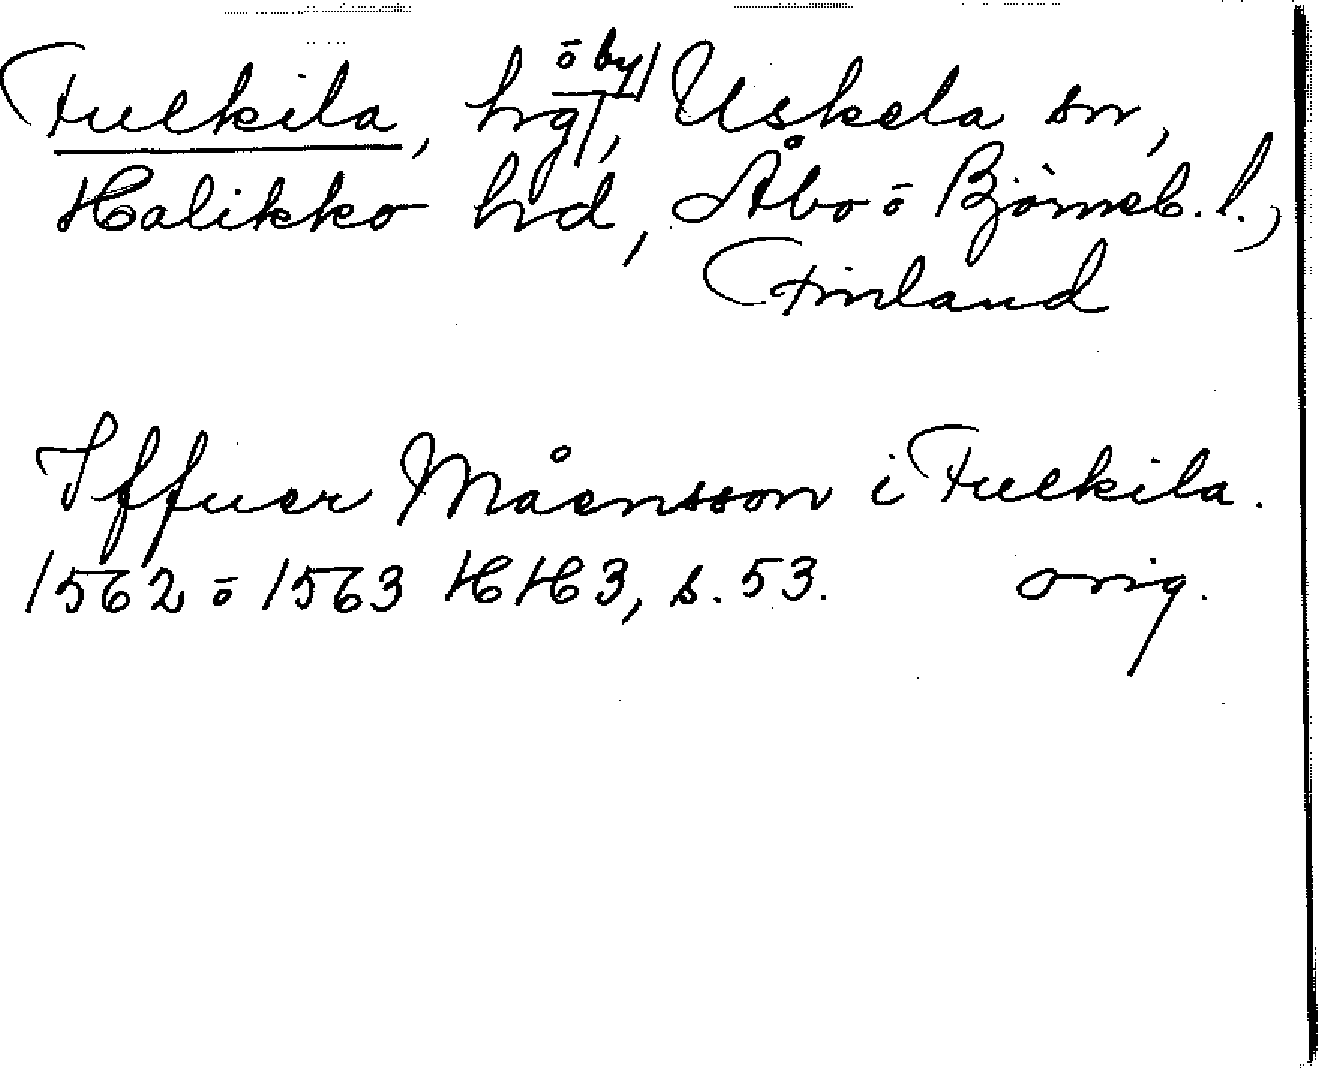 Fulkila, hrg ō by, Uskela sn,
Halikko hrd, Åbo ō Björneb. l.,
Finland
Iffuer Måensson i Fulkila.
1562 ō 1563 HH3, s. 53. orig.